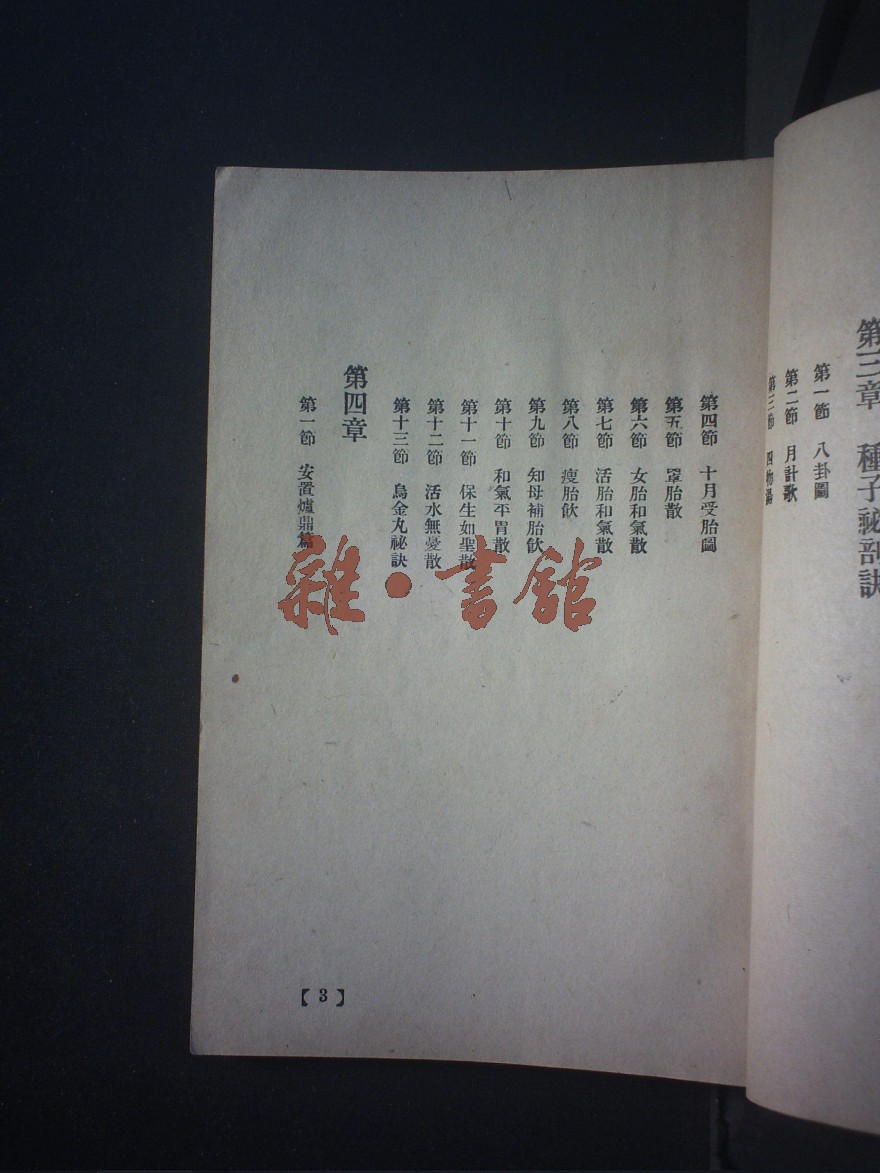 第三章　種子祕剖訣
第一節　八卦圖
第二節　月計歌
第三節　四物湯
第四節　十月受胎圖
第五節　罩胎散
第六節　女胎和氣散
第七節　活胎和氣散
第八節　瘦胎飲
第九節　知母補胎飲
第十節　和氣平胃散
第十一節　保生如聖散
第十二節　活水無憂散
第十三節　烏金丸祕訣
第四章
第一節　安置爐鼎篇
【3】
雜·書館